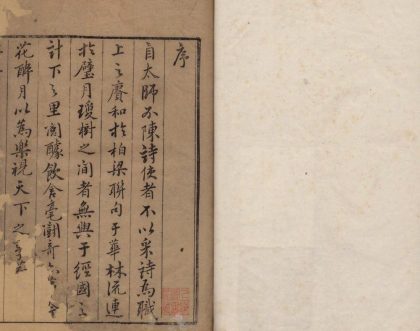 序
自太師不陳詩使者不以采詩為職
上之賡和於柏梁聯句于華林流連
於璧月瓊樹之间者無與于經國之
計下之里閭醵飲含毫鬬奇
花醉月以為樂視天下之